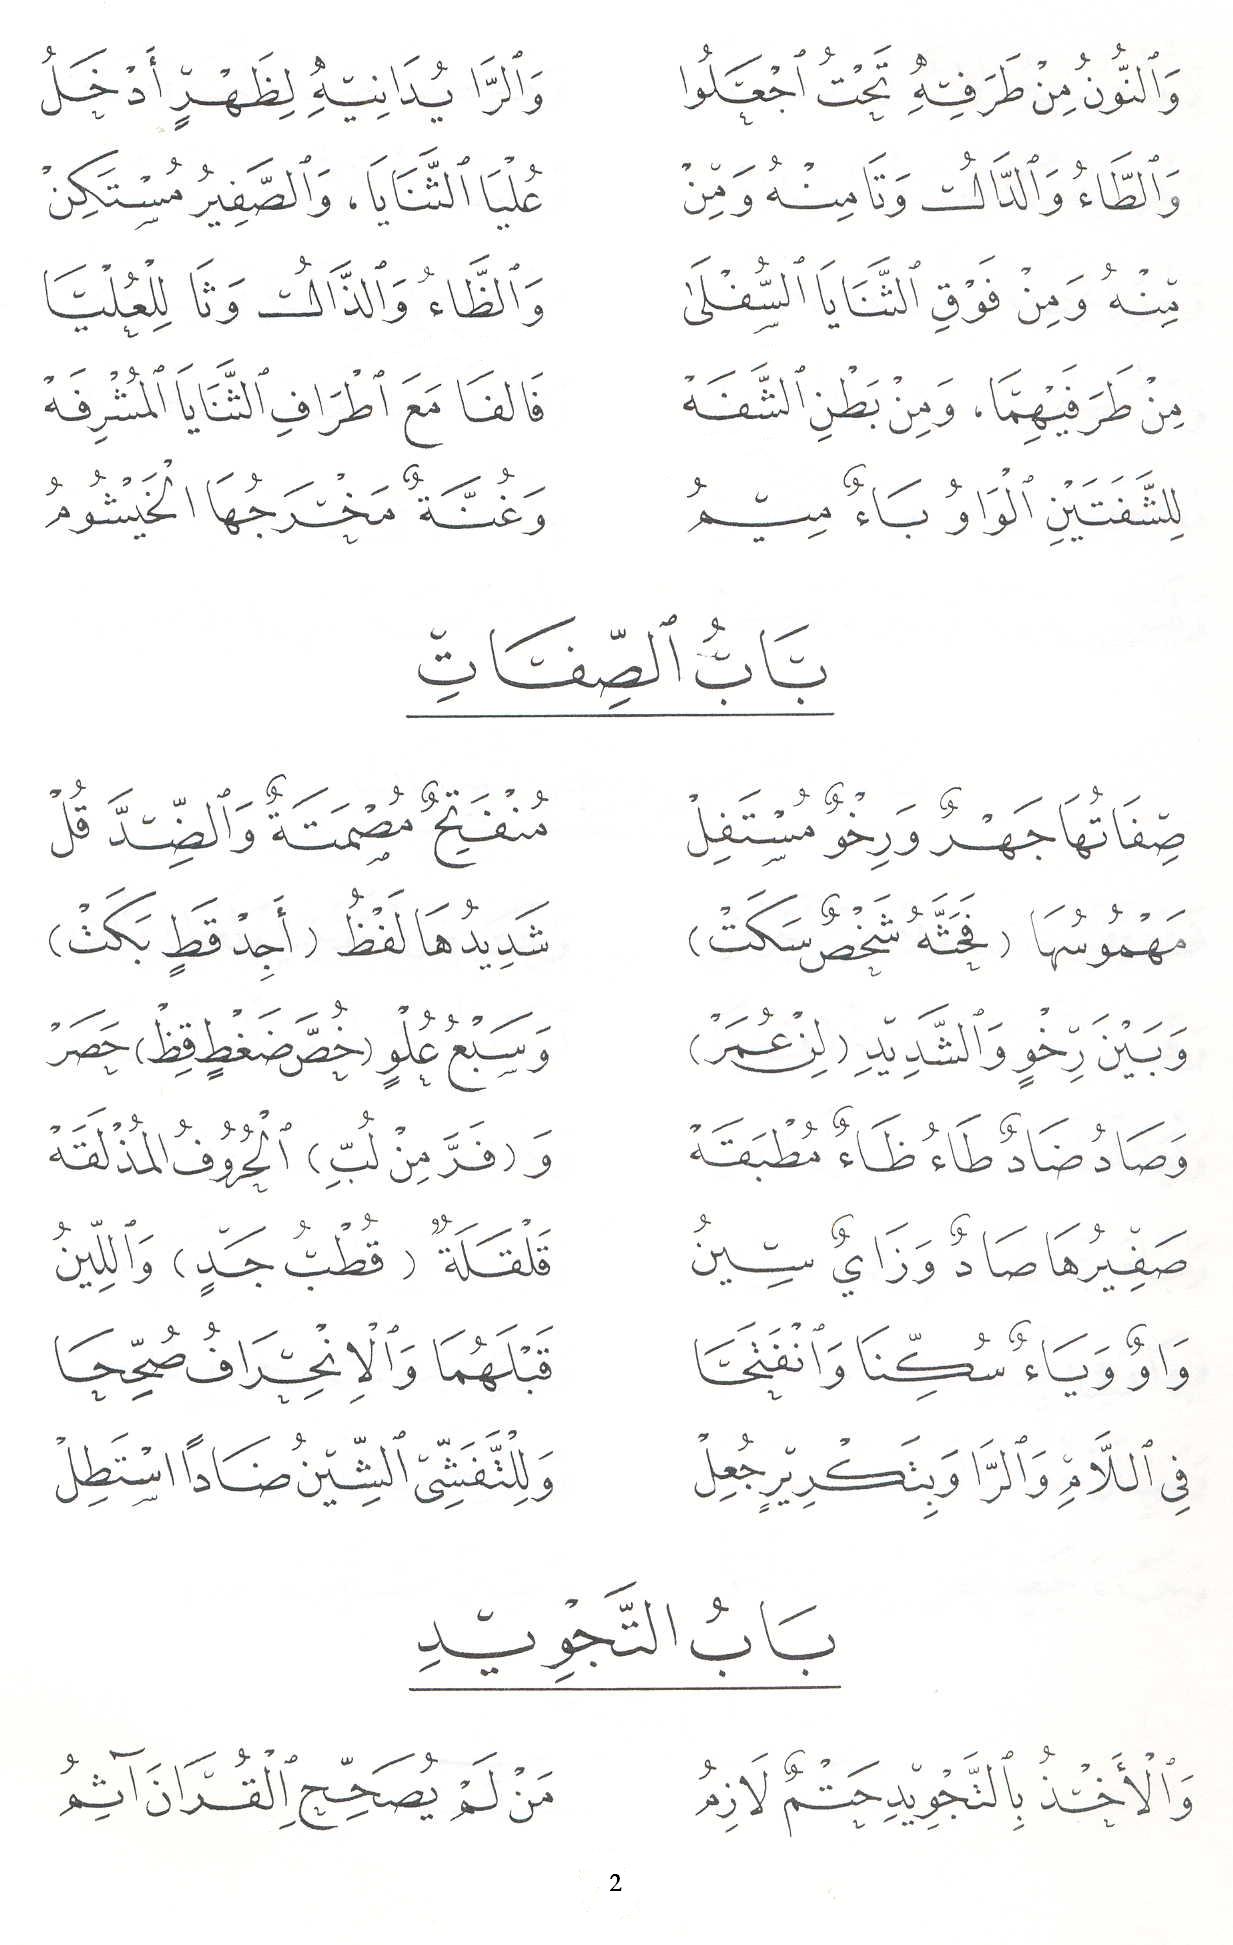 وَٱلنُّونُ مِنْ طَرَفِهِ تَحْتُ ٱجْعَلُوا وَٱلرَّا يُدَانِيهِ لِظَهْرٍ أَدْخَلُ
وَٱلطَّاءُ وَٱلدَّالُ وَتَا مِنْهُ وَمِنْ عُلْيَا ٱلثَّنَايَا، وَٱلصَّفِيرُ مُسْتَكِنْ
مِنْهُ وَمِنْ فَوْقِ ٱلثَّنَايَا ٱلسُّفْلَىٰ وَٱلظَّاءُ وَٱلذَّالُ وَثَا لِلْعُلْيَا
مِنْ طَرَفَيْهِمَا، وَمِنْ بَطْنِ ٱلشَّفَهْ فَالفَا مَعَ ٱطْرَافِ ٱلثَّنَايَا ٱلمُشْرِفَهْ
لِلشَّفَتَيْنِ ٱلْوَاوُ بَاءٌ مِيمُ وَغُنَّةٌ مَخْرَجُهَا الْخَيْشُومُ
بَابُ ٱلصِّفَاتِ
صِفَاتُهَا جَهْرٌ وَرِخْوٌ مُسْتَفِلْ مُنْفَتِحٌ مُصْمَتَةٌ وَٱلضِّدَّ قُلْ
مَهْمُوسُهَا (فَحَثَّهُ شَخْصٌ سَكَتْ) شَدِيدُهَا لَفْظُ (أَجِدْ قَطٍ بَكَتْ)
وَبَيْنَ رِخْوٍ وَٱلشَّدِيدِ (لِنْ عُمَرْ) وَسَبْعُ عُلْوٍ (خُصَّ ضَغْطٍ قِظْ) حَصَرْ
وَصَادُ ضَادٌ طَاءُ ظَاءٌ مُطْبَقَهْ وَ (فَرَّ مِنْ لُبِّ) ٱلْحُرُوفُ المُذْلَقَهْ
صَفِيرُهَا صَادٌ وَزَايٌ سِينُ قَلْقَلَةٌ (قُطْبُ جَدٍّ) وَٱللِّينُ
وَاوٌ وَيَاءٌ سُكِّنَا وَٱنْفَتَحَا قَبْلَهُمَا وَٱلْاِنْحِرَافُ صُحِّحَا
فِي ٱللَّامِ وَٱلرَّا وَبِتَكْرِيرٍ جُعِلْ وَلِلتَّفَشِّي ٱلشِّينُ ضَادًا اسْتَطِلْ
بَابُ التَّجْوِيدِ
وَٱلْأَخْذُ بِٱلتَّجْوِيدِ حَتْمٌ لَازِمُ مَنْ لَمْ يُصَحِّحِ ٱلْقُرَانَ آثِمُ
2